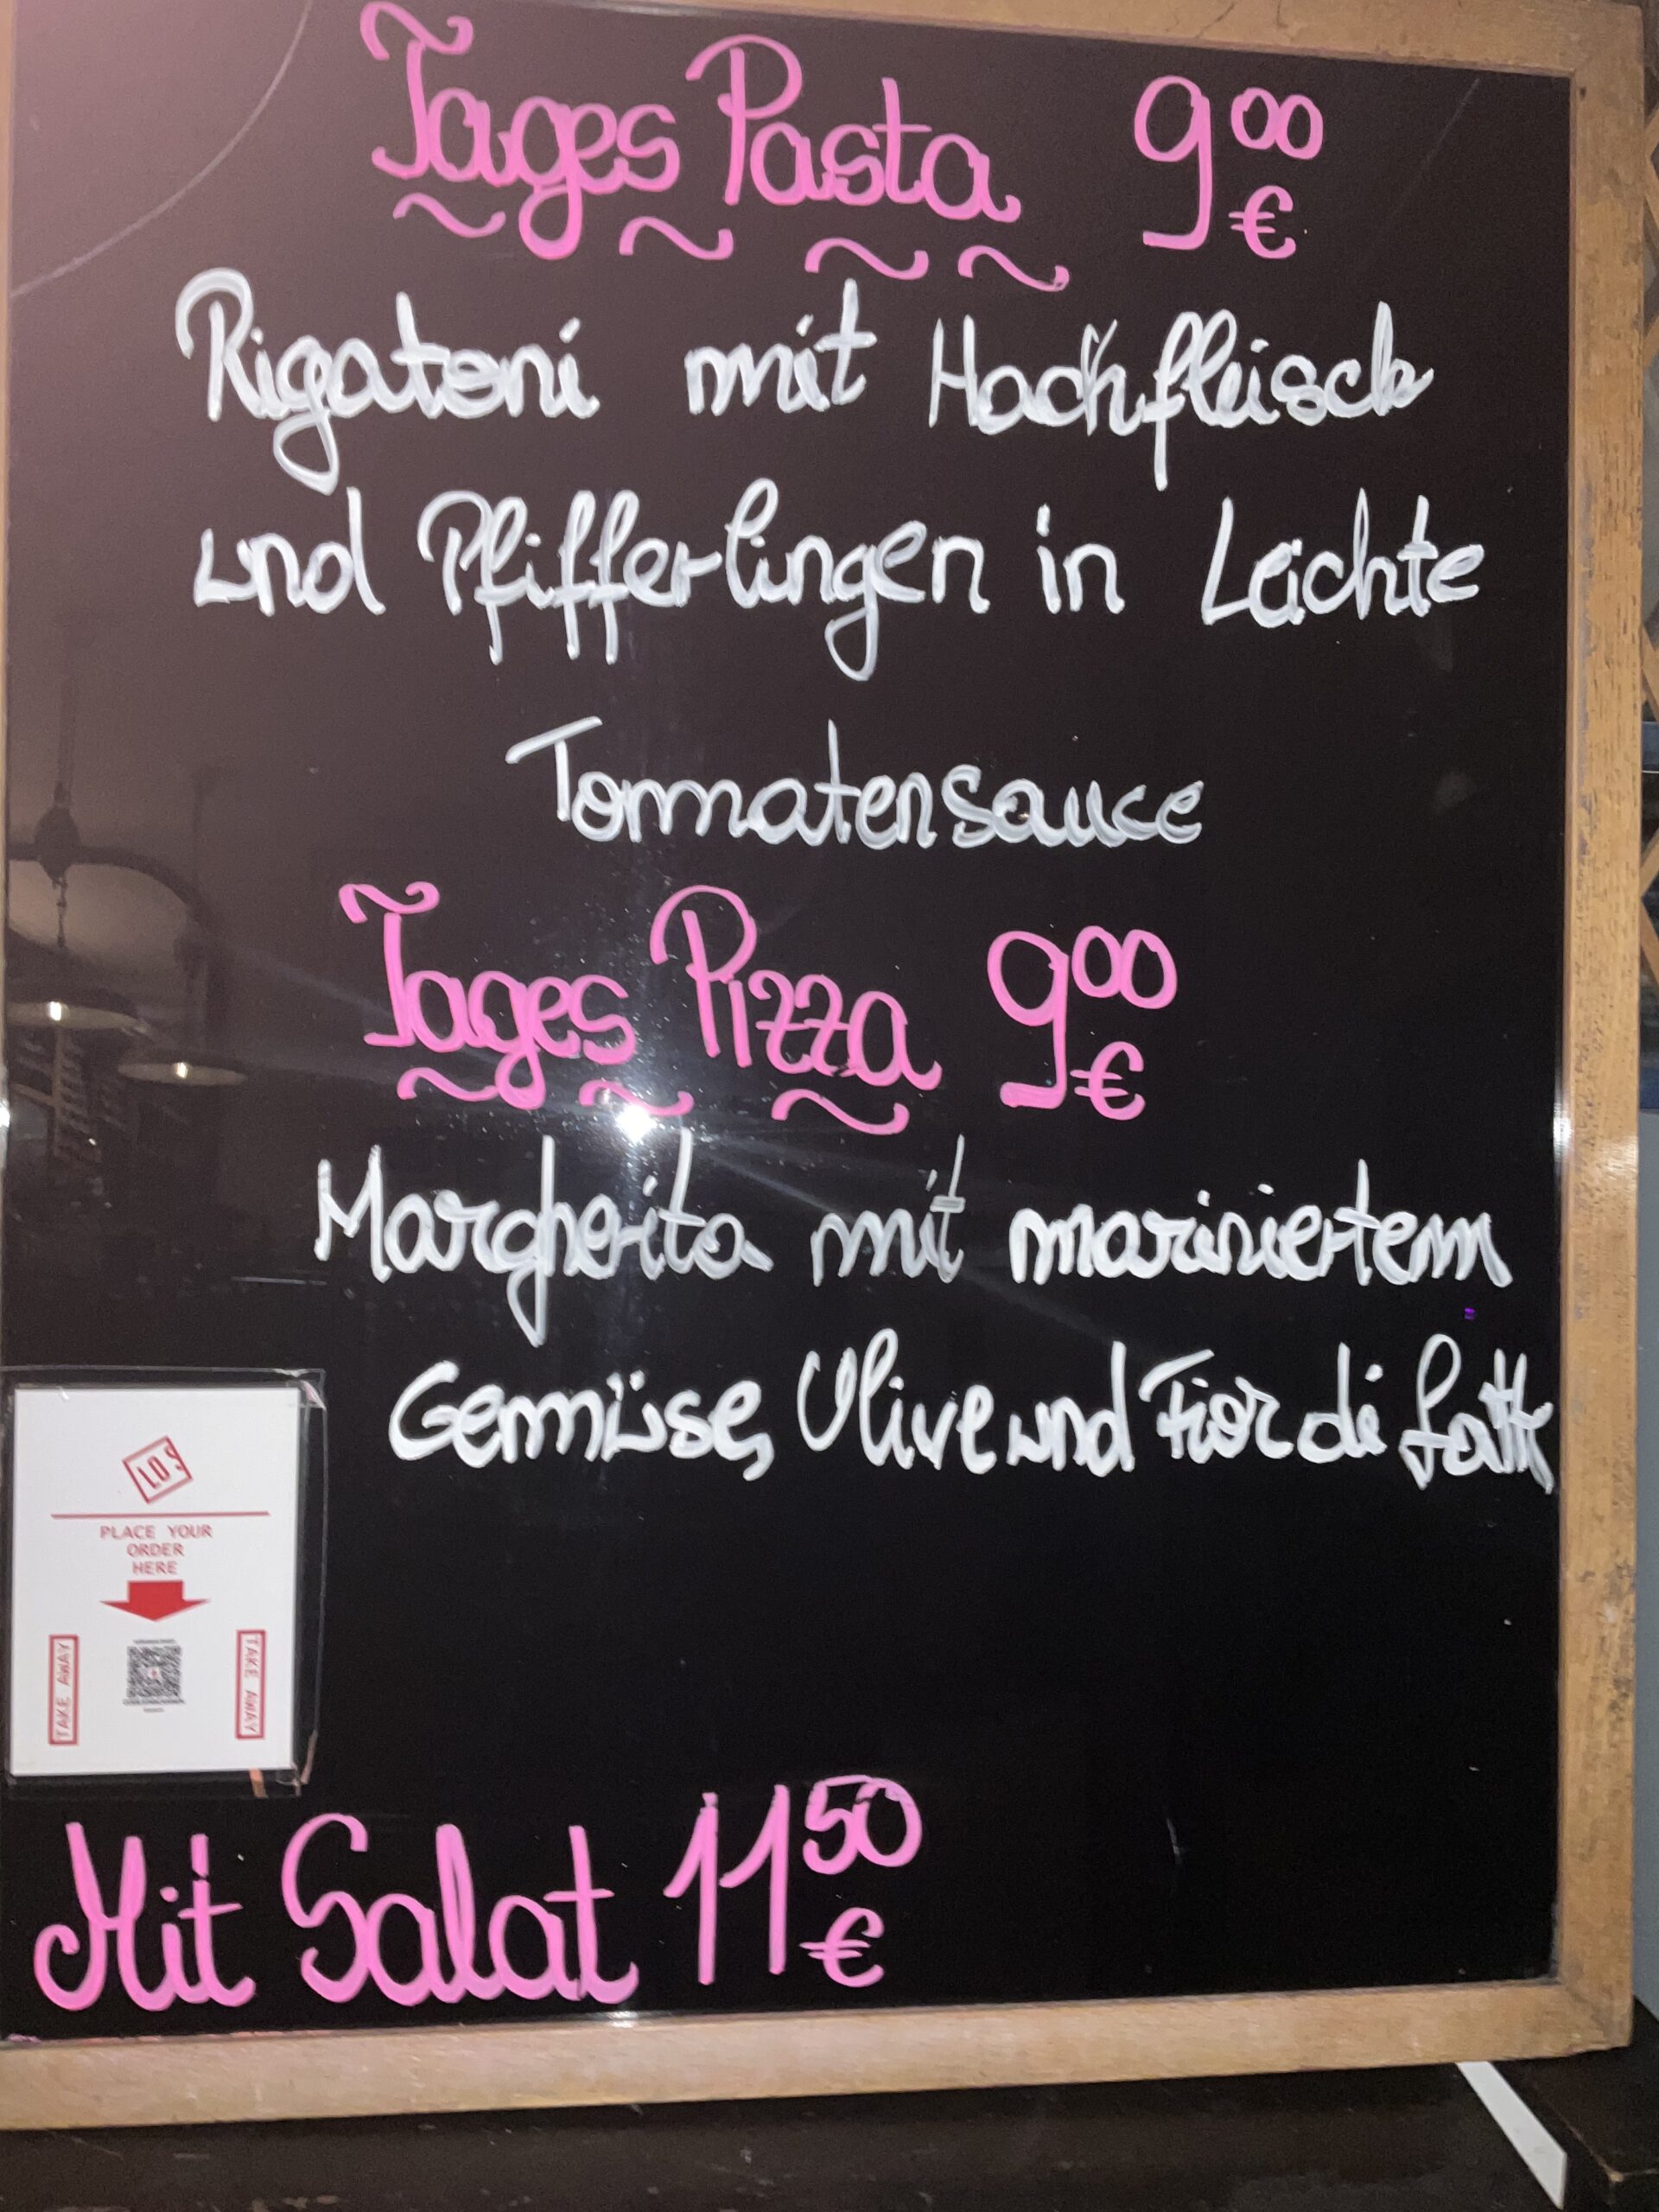 Tages Pasta 9⁰⁰ €
Rigatoni mit Hackfleisch
und Pfifferlingen in Leichte
Tomatensauce
Tages Pizza 9⁰⁰ €
Margherita mit mariniertem
Gemüse, Olive und Fior di latte
LOS
PLACE YOUR
ORDER
HERE
TAKE AWAY
TAKE AWAY
Mit Salat 11⁵⁰ €